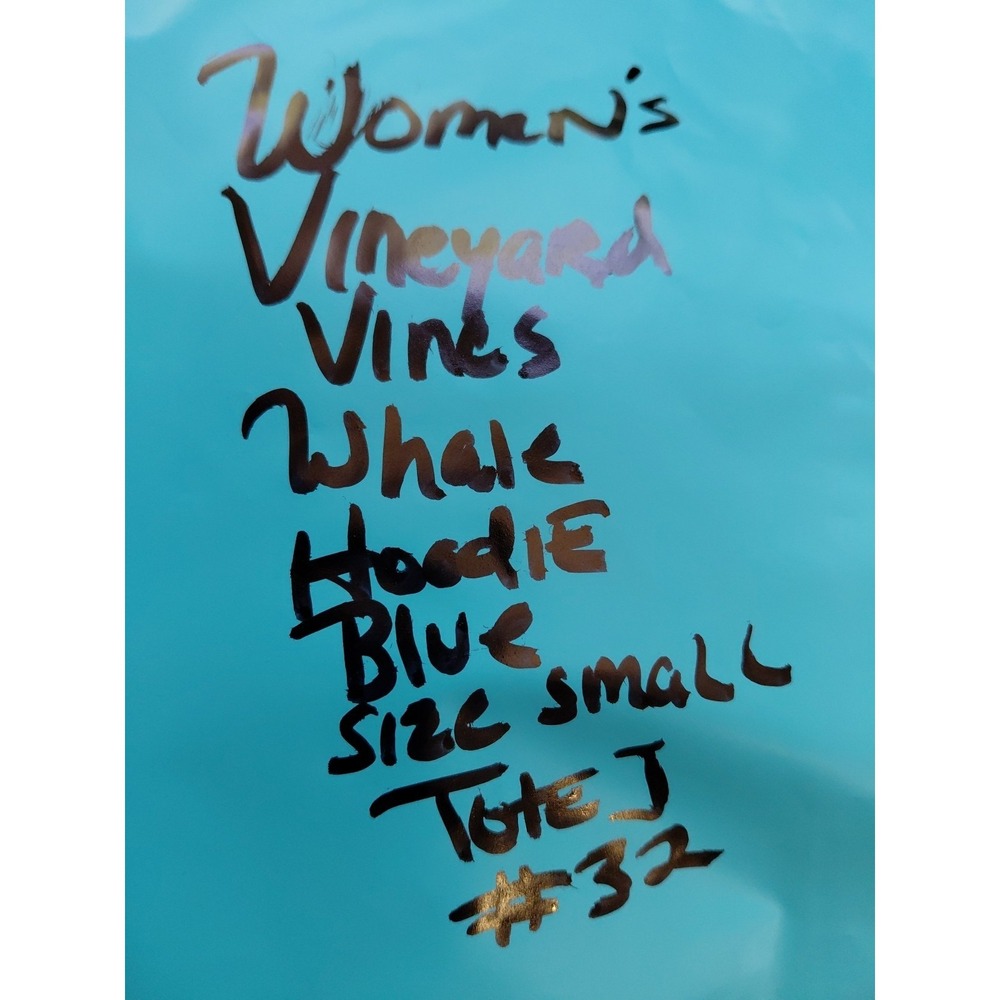 Women's
Vineyard
Vines
Whale
HoodIE
Blue
SIZE small
TotE J
#32